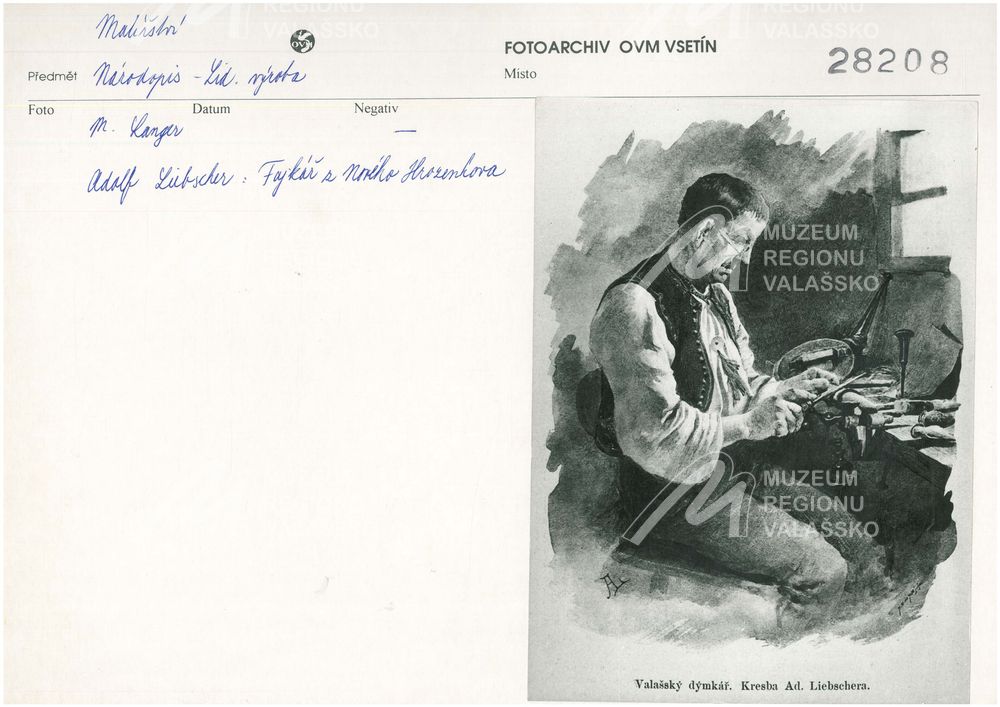 Malířství
OVM
FOTOARCHIV OVM VSETÍN
28208
Předmět Národopis - Lid. výroba
Místo
Foto Datum Negativ
M. Langer —
Adolf Liebscher: Fajkář z Nového Hrozenkova
MUZEUM
REGIONU
VALAŠSKO
MUZEUM
REGIONU
VALAŠSKO
MUZEUM
REGIONU
VALAŠSKO
AL
Valašský dýmkář. Kresba Ad. Liebschera.